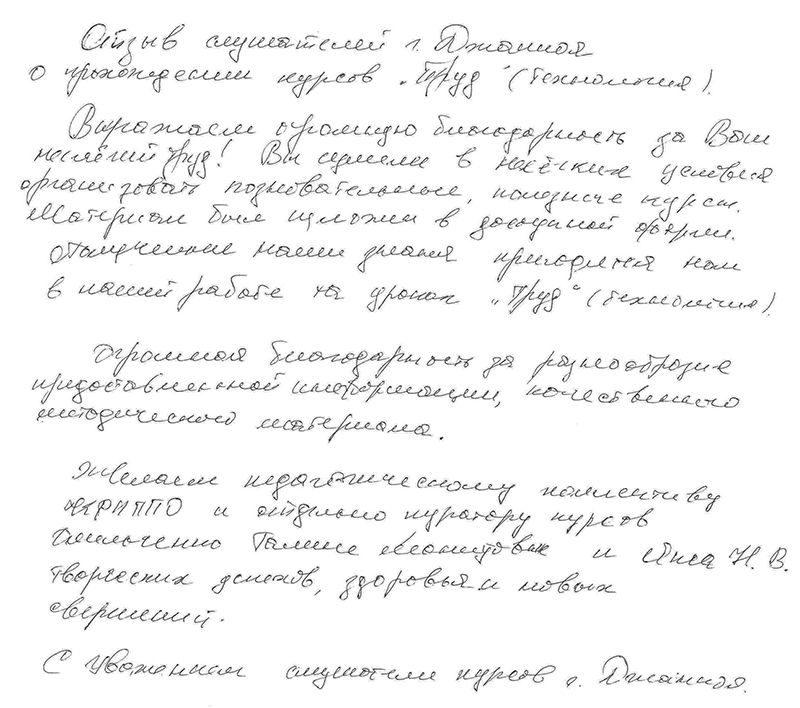 Отзыв слушателей г. Джанкоя
о прохождении курсов „Труд“ (Технология).
Выражаем огромную благодарность за Ваш
нелёгкий труд! Вы сумели в нелёгких условиях
организовать познавательные, полезные курсы.
Материал был изложен в доступной форме.
Полученные нами знания пригодятся нам
в нашей работе на уроках „Труд“ (Технология).
Огромная благодарность за разнообразие
предоставленной информации, качественного
методического материала.
Желаем педагогическому коллективу
КРИППО и отдельно куратору курсов
Галине Леонидовне и Н. В.
творческих успехов, здоровья и новых
свершений.
С уважением слушатели курсов г. Джанкоя.